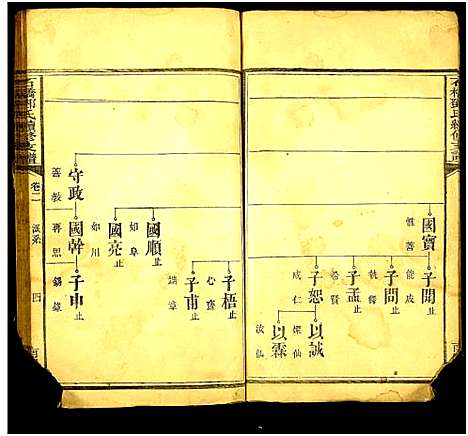 石橋鄧氏續修支譜
國寶
惟善
子聞止
能成
子問止
執鐸
子孟止
希賢
子恕
成仁
以誠
燦仙
以霖
汝仙
石橋鄧氏續修支譜
卷二
派系
四
守政
善教
國幹
再思
子申止
錫祿
國順止
如阜
國亮止
如川
子梧止
心齋
子甫止